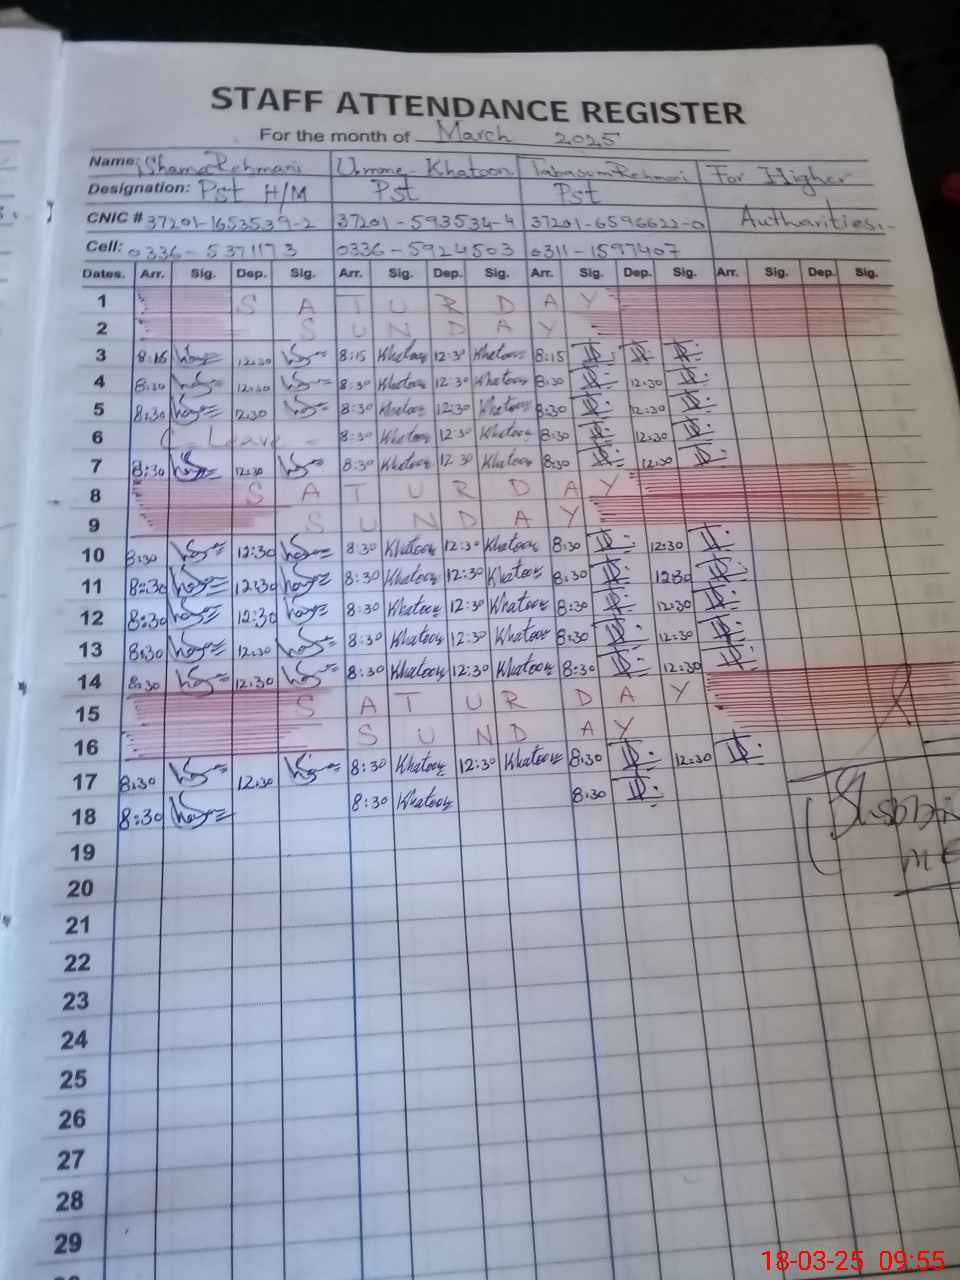 STAFF ATTENDANCE REGISTER
For the month of March 2025
Name: Shama Rehmani Umme Khatoon Tabasum Rehmani For Higher
Designation: Pst H/M Pst Pst Autharities:-
CNIC # 37201-1653539-2 37201-593534-4 37201-6596622-0
Cell: 0336-5371173 0336-5924503 0311-1597407
Dates. Arr. Sig. Dep. Sig. Arr. Sig. Dep. Sig. Arr. Sig. Dep. Sig. Arr. Sig. Dep. Sig.
1 SATURDAY
2 SUNDAY
3 8:15 12:30 8:15 Khatoon 12:30 Khatoon 8:15
4 8:30 12:30 8:30 Khatoon 12:30 Khatoon 8:30 12:30
5 8:30 12:30 8:30 Khatoon 12:30 Khatoon 8:30 12:30
6 C-Leave - 8:30 Khatoon 12:30 Khatoon 8:30 12:30
7 8:30 12:30 8:30 Khatoon 12:30 Khatoon 8:30 12:30
8 SATURDAY
9 SUNDAY
10 8:30 12:30 8:30 Khatoon 12:30 Khatoon 8:30 12:30
11 8:30 12:30 8:30 Khatoon 12:30 Khatoon 8:30 12:30
12 8:30 12:30 8:30 Khatoon 12:30 Khatoon 8:30 12:30
13 8:30 12:30 8:30 Khatoon 12:30 Khatoon 8:30 12:30
14 8:30 12:30 8:30 Khatoon 12:30 Khatoon 8:30 12:30
15 SATURDAY
16 SUNDAY
17 8:30 12:30 8:30 Khatoon 12:30 Khatoon 8:30 12:30
18 8:30 8:30 Khatoon 8:30
19
20
21
22
23
24
25
26
27
28
29
18-03-25 09:55